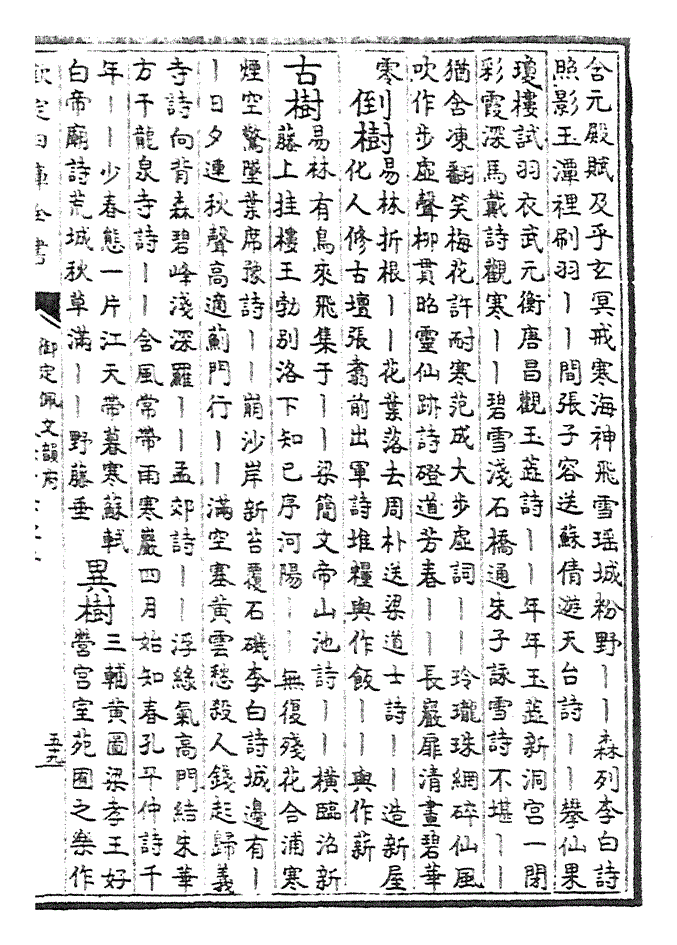 含元殿賦及乎玄冥戒寒海神飛雪瑶城粉野｜｜森列李白詩
照影玉潭裡刷羽｜｜間張子容送蘇倩遊天台詩｜｜攀仙果
瓊樓試羽衣武元衡唐昌觀玉蕊詩｜｜年年玉蕊新洞宫一閉
彩霞深馬戴詩觀寒｜｜碧雪淺石橋通朱子詠雪詩不堪｜｜
猶含凍翻笑梅花許耐寒范成大步虚詞｜｜玲瓏珠網碎仙風
吹作步虚聲柳貫昭靈仙跡詩磴道芳春｜｜長巖扉清晝碧華
寒
倒樹
易林折根｜｜花葉落去周朴送梁道士詩｜｜造新屋
化人修古壇張蠢前出軍詩堆糧與作飯｜｜與作薪
古樹
易林有鳥來飛集于｜｜梁簡文帝山池詩｜｜横臨沼新
藤上挂樓王勃别洛下知己序河陽｜｜無復殘花合浦寒
煙空驚墜葉席豫詩｜｜崩沙岸新苔覆石磯李白詩城邊有｜
｜日夕連秋聲高適薊門行｜｜滿空塞黄雲愁殺人錢起歸義
寺詩向背森碧峰淺深羅｜｜孟郊詩｜｜浮緑氣高門結朱華
方干龍泉寺詩｜｜含風常帶雨寒巖四月始知春孔平仲詩千
年｜｜少春態一片江天帶暮寒蘇軾
白帝廟詩荒城秋草滿｜｜野藤垂
異樹
三輔黄圖梁孝王好
營宫室苑囿之樂作
欽定四庫全書
御定佩文韻府
五十九